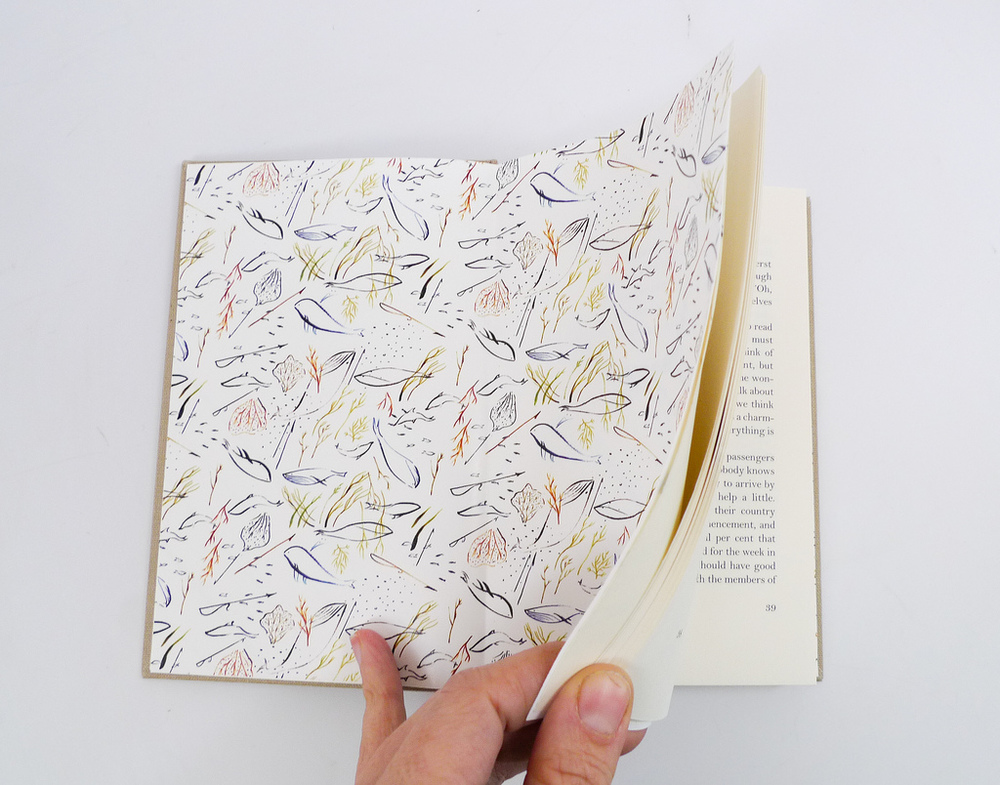 erst
ugh
'Oh,
elves
read
must
ink of
nt, but
e won-
lk about
we think
a charm-
rything is
passengers
obody knows
to arrive by
help a little.
their country
encement, and
per cent that
d for the week in
hould have good
th the members of
39
9